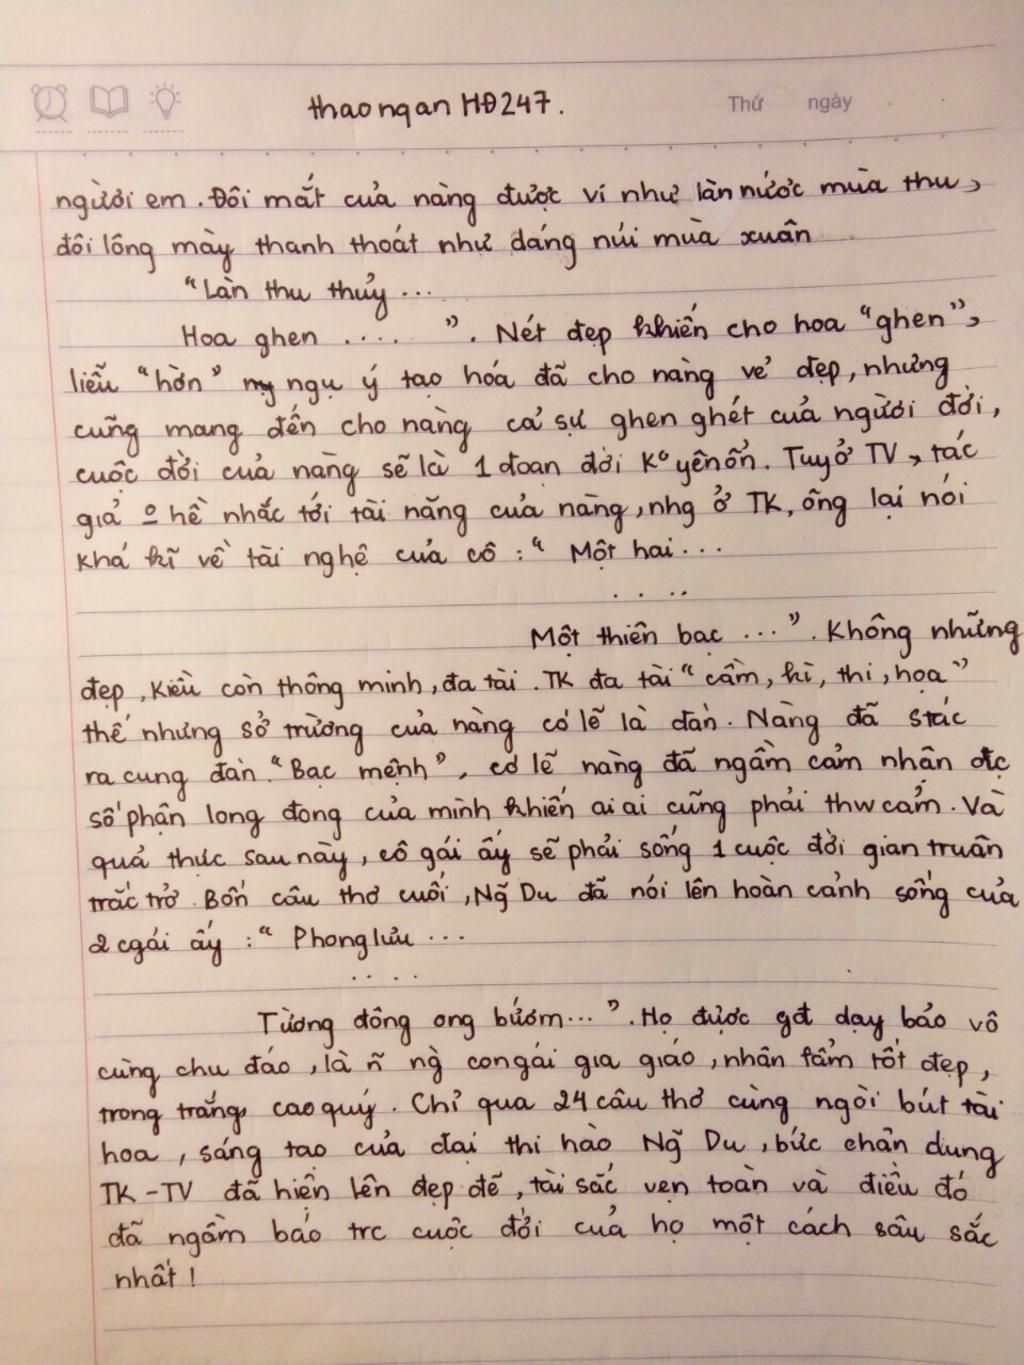 thaongan HĐ247.
Thứ ngày
người em. Đôi mắt của nàng được ví như làn nước mùa thu,
đôi lông mày thanh thoát như dáng núi mùa xuân
"Làn thu thủy ...
Hoa ghen .... ". Nét đẹp khiến cho hoa "ghen",
liễu "hờn" ngụ ý tạo hóa đã cho nàng vẻ đẹp, nhưng
cũng mang đến cho nàng cả sự ghen ghét của người đời,
cuộc đời của nàng sẽ là 1 đoạn đời Kº yên ổn. Tuy ở TV, tác
giả º hề nhắc tới tài năng của nàng, nhg ở TK, ông lại nói
khá kĩ về tài nghệ của cô : " Một hai ...
....
Một thiên bạc ...". Không những
đẹp, Kiều còn thông minh, đa tài. TK đa tài "cầm, kì, thi, họa"
thế nhưng sở trường của nàng có lẽ là đàn. Nàng đã stác
ra cung đàn "Bạc mệnh", có lẽ nàng đã ngầm cảm nhận đtc
số phận long đong của mình khiến ai ai cũng phải thw cảm. Và
quả thực sau này, cô gái ấy sẽ phải sống 1 cuộc đời gian truân
trắc trở. Bốn câu thơ cuối, Ng~ Du đã nói lên hoàn cảnh sống của
2 cgái ấy : " Phong lưu ...
....
Tường đông ong bướm...". Họ được gđ dạy bảo vô
cùng chu đáo, là ñ ng` con gái gia giáo, nhân fẩm tốt đẹp,
trong trắng, cao quý. Chỉ qua 24 câu thơ cùng ngòi bút tài
hoa, sáng tạo của đại thi hào Ng~ Du, bức chân dung
TK - TV đã hiện lên đẹp đẽ, tài sắc vẹn toàn và điều đó
đã ngầm báo trc cuộc đời của họ một cách sâu sắc
nhất !